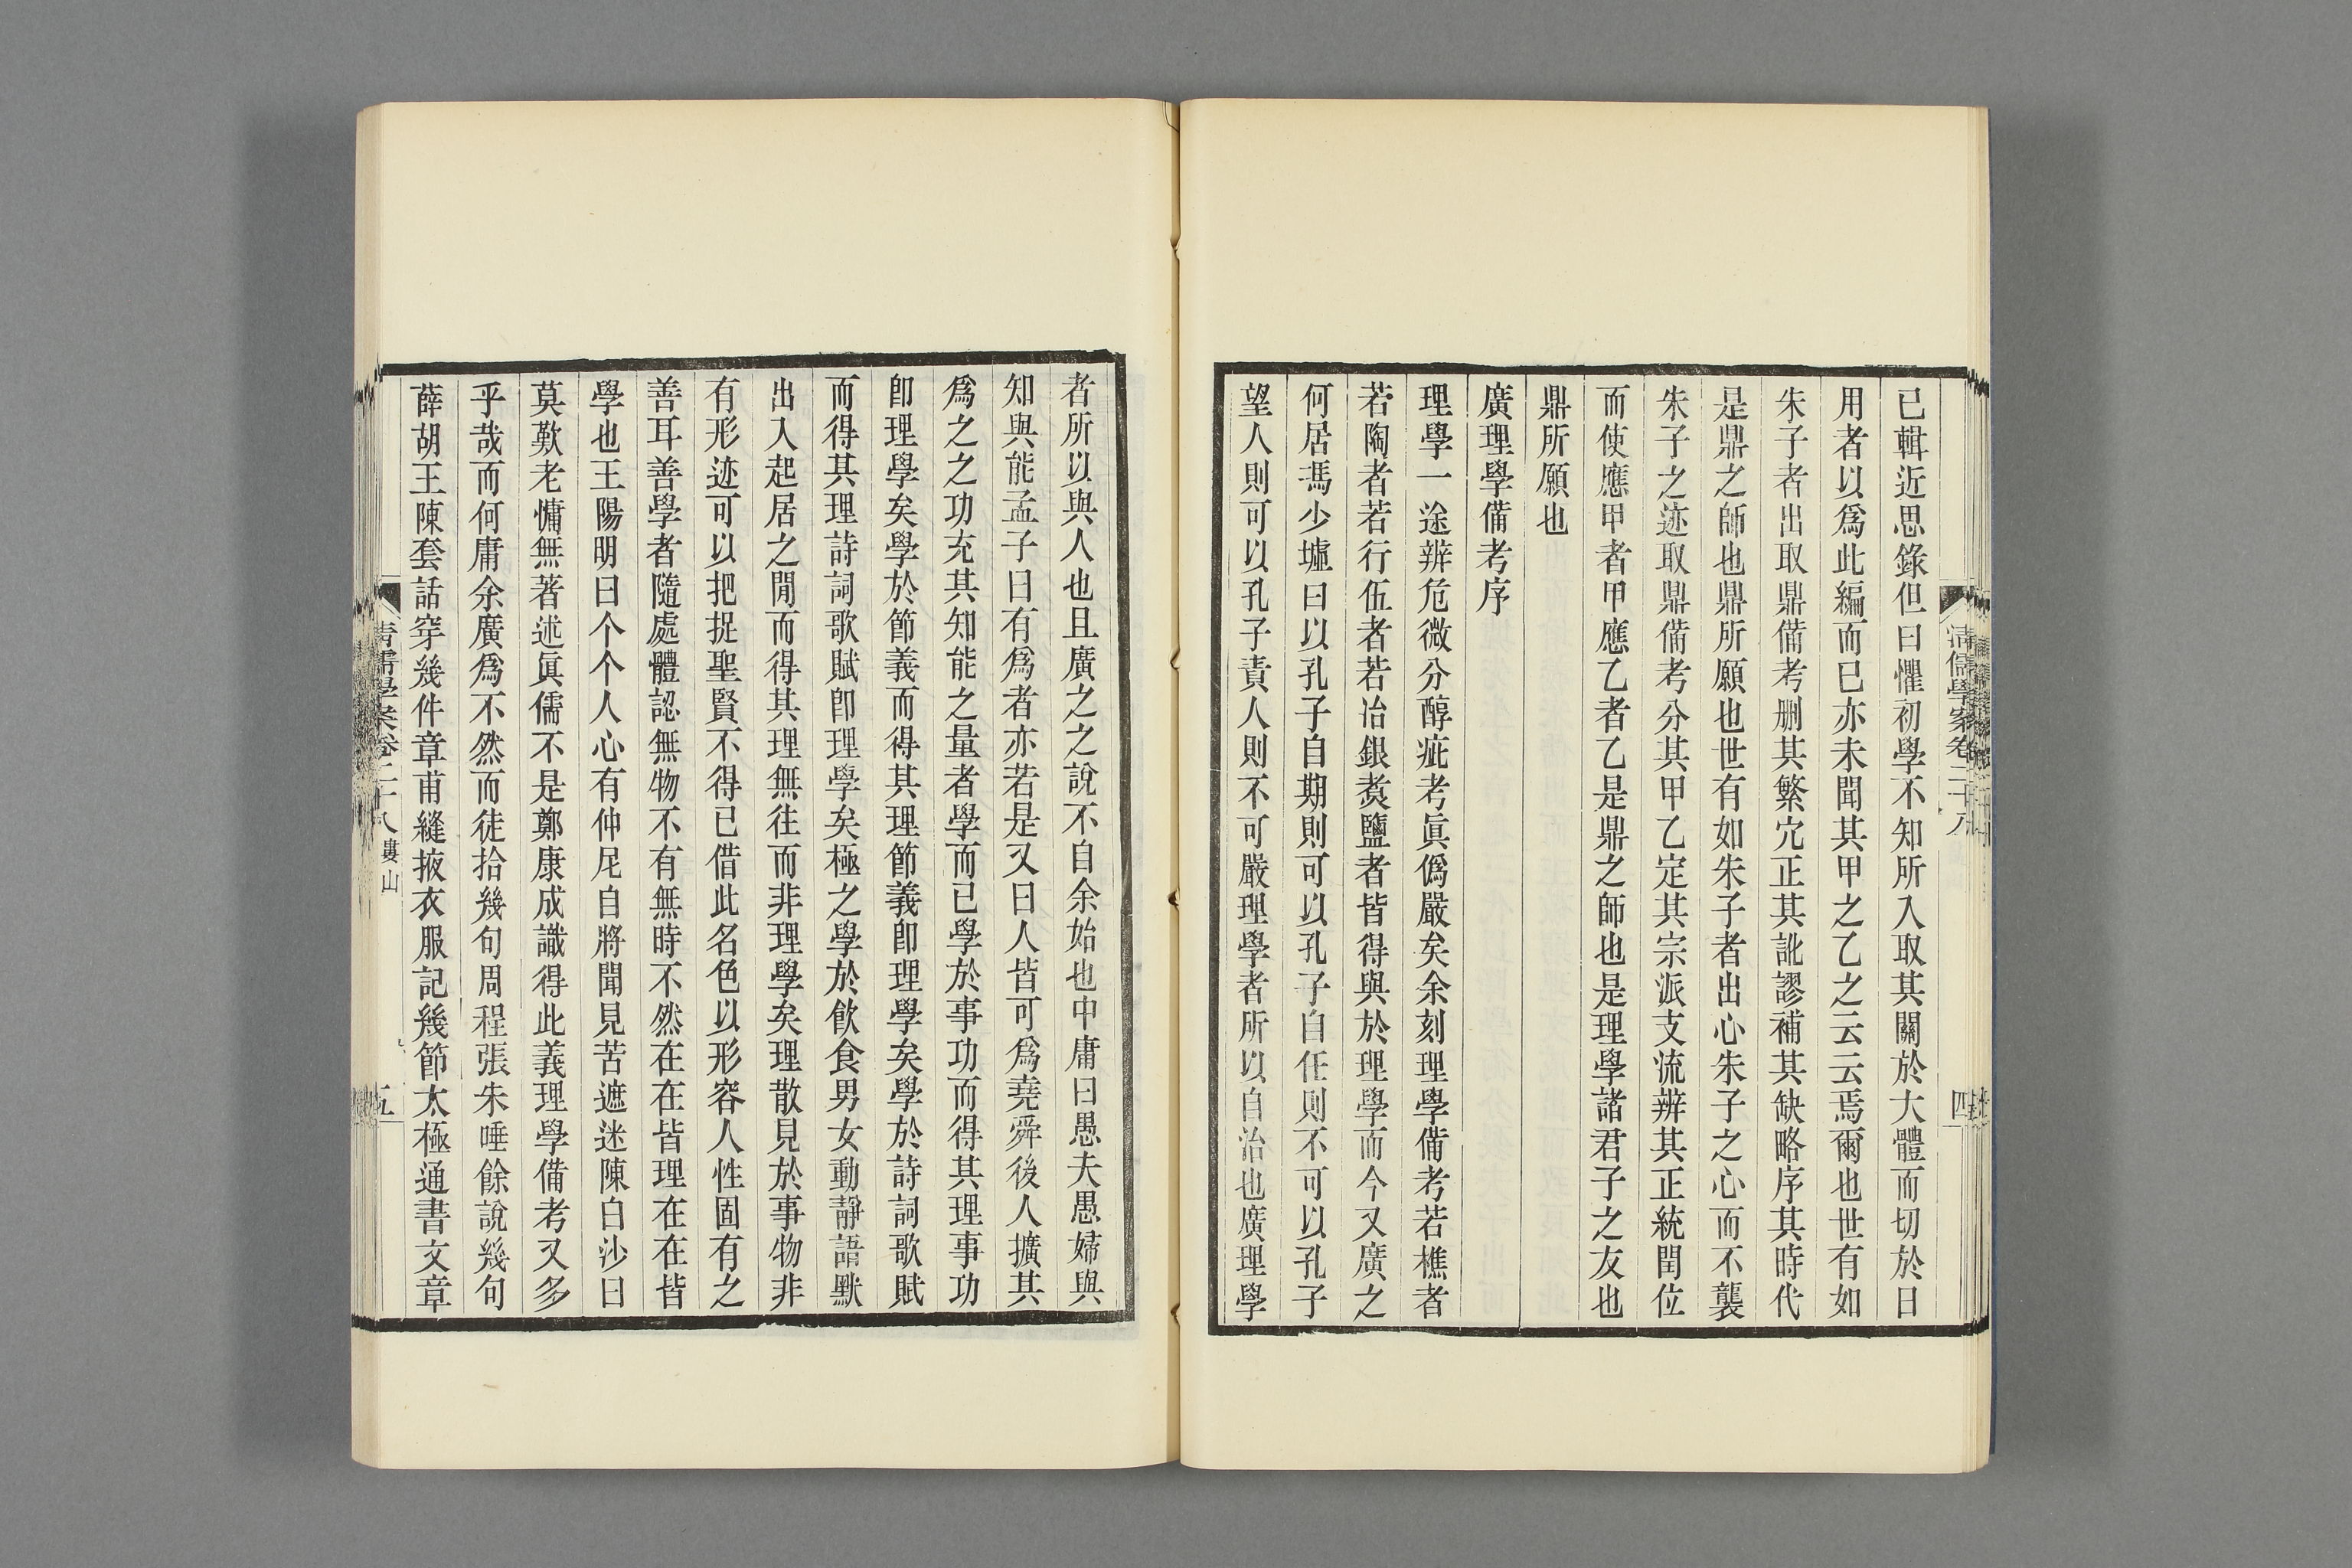 已輯近思錄但曰懼初學不知所入取其關於大體而切於日
用者以爲此編而已亦未聞其甲之乙之云云焉爾也世有如
朱子者出取鼎備考刪其繁宂正其訛謬補其缺略序其時代
是鼎之師也鼎所願也世有如朱子者出心朱子之心而不襲
朱子之迹取鼎備考分其甲乙定其宗派支流辨其正統閏位
而使應甲者甲應乙者乙是鼎之師也是理學諸君子之友也
鼎所願也
廣理學備考序
理學一途辨危微分醇疵考眞僞嚴矣余刻理學備考若樵者
若陶者若行伍者若冶銀煑鹽者皆得與於理學而今又廣之
何居馮少墟曰以孔子自期則可以孔子自任則不可以孔子
望人則可以孔子責人則不可嚴理學者所以自治也廣理學
清儒學案卷二十八
四
者所以與人也且廣之之說不自余始也中庸曰愚夫愚婦與
知與能孟子曰有爲者亦若是又曰人皆可爲堯舜後人擴其
爲之之功充其知能之量者學而已學於事功而得其理事功
卽理學矣學於節義而得其理節義卽理學矣學於詩詞歌賦
而得其理詩詞歌賦卽理學矣極之學於飮食男女動靜語默
出入起居之閒而得其理無往而非理學矣理散見於事物非
有形迹可以把捉聖賢不得已借此名色以形容人性固有之
善耳善學者隨處體認無物不有無時不然在在皆理在在皆
學也王陽明曰个个人心有仲尼自將聞見苦遮迷陳白沙曰
莫歎老慵無著述眞儒不是鄭康成識得此義理學備考又多
乎哉而何庸余廣爲不然而徒拾幾句周程張朱唾餘說幾句
薛胡王陳套話穿幾件章甫縫掖衣服記幾節太極通書文章
清儒學案卷二十八 婁山
五